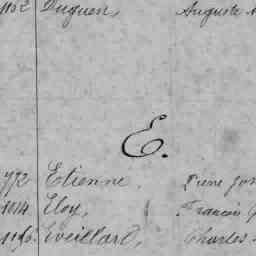 1152 Duguen, Auguste
E.
772 Etienne, Pierre Jos
1014 Eloy, Francois
1146. Eveillard, Charles